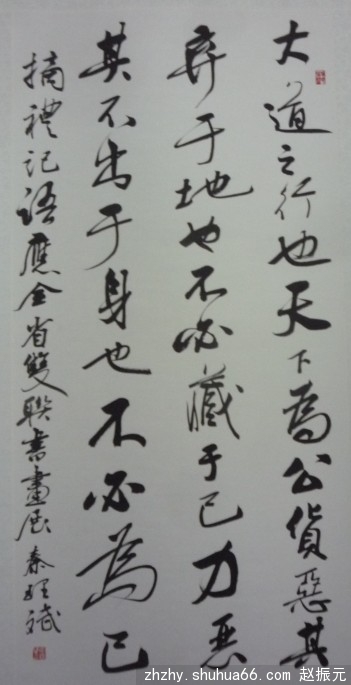 大道之行也天下為公貨惡其
弃于地也不必藏于己力恶
其不出于身也不必為己
摘禮記語應全省雙聯書畫展秦斌
zhzhy.shuhua66.com 赵振元